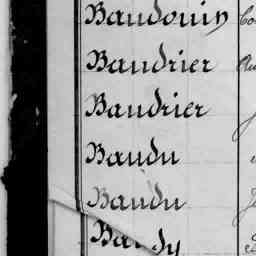 Baudouin
Baudrier
Baudrier
Baudu
Baudu